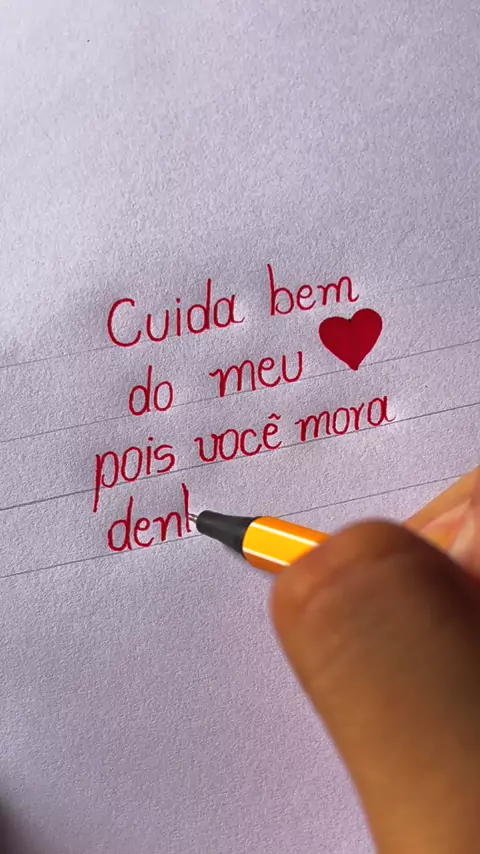 Cuida bem
do meu ❤
pois você mora
den